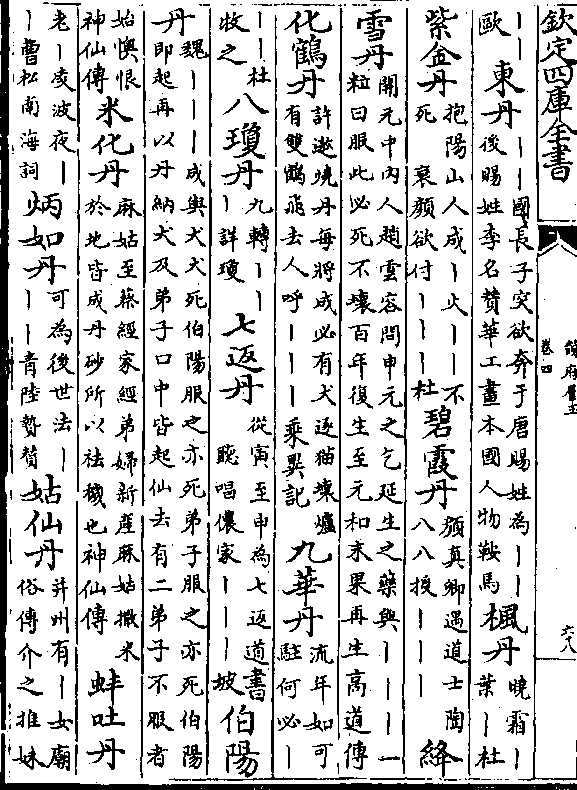 欽定四庫全書
韻府羣玉
卷四
六八
｜｜東丹｜｜國長子突欲奔于唐賜姓為｜｜
歐 後賜姓李名贊華工畫本國人物鞍馬
楓丹曉霜｜
葉｜杜
紫金丹抱陽山人成｜火｜｜不
死 衰顔欲付｜｜｜杜
碧霞丹顔真卿遇道士陶
八八授｜｜｜
絳
雪丹開元中內人趙雲容問申元之乞延生之藥與｜｜｜一
粒曰服此必死不壞百年復生至元和末果再生高道傳
化鶴丹許遨燒丹每將成必有犬逐猫壞爐
有雙鶴飛去人呼｜｜｜乘異記
九華丹流年如可
駐何必｜
｜｜杜
牧之
八瓊丹九轉｜｜
｜詳瓊
七返丹從寅至申為七返道書
腕唱儂家｜｜｜坡
伯陽
丹魏｜｜｜成與犬犬死伯陽服之亦死弟子服之亦死伯陽
即起再以丹納犬及弟子口中皆起仙去有二弟子不服者
始懊恨
神仙傳
米化丹麻姑至蔡經家經弟婦新產麻姑撒米
於地皆成丹砂所以祛穢也神仙傳
蚌吐丹
老｜凌波夜｜
｜曹松南海詞
炳如丹可為後世法｜
｜｜青陸贄贊
姑仙丹并州有｜女廟
俗傳介之推妹